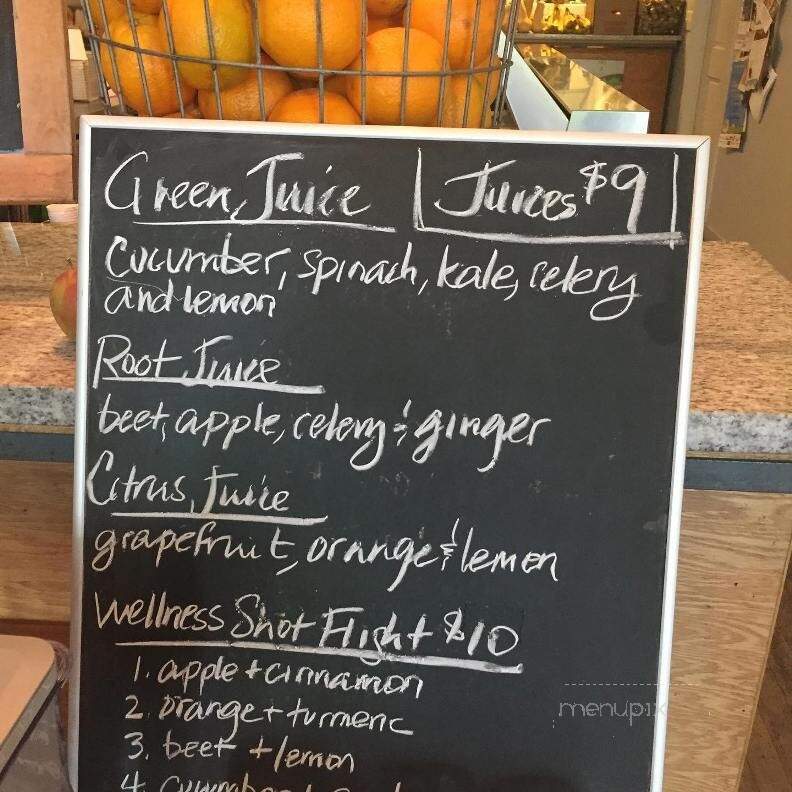 Green Juice
Juices $9
Cucumber, spinach, kale, celery
and lemon
Root Juice
beet, apple, celery & ginger
Citrus Juice
grapefruit, orange & lemon
Wellness Shot Flight $10
1. apple + cinnamon
2. orange + turmeric
3. beet + lemon
4. cucumber +
menupix